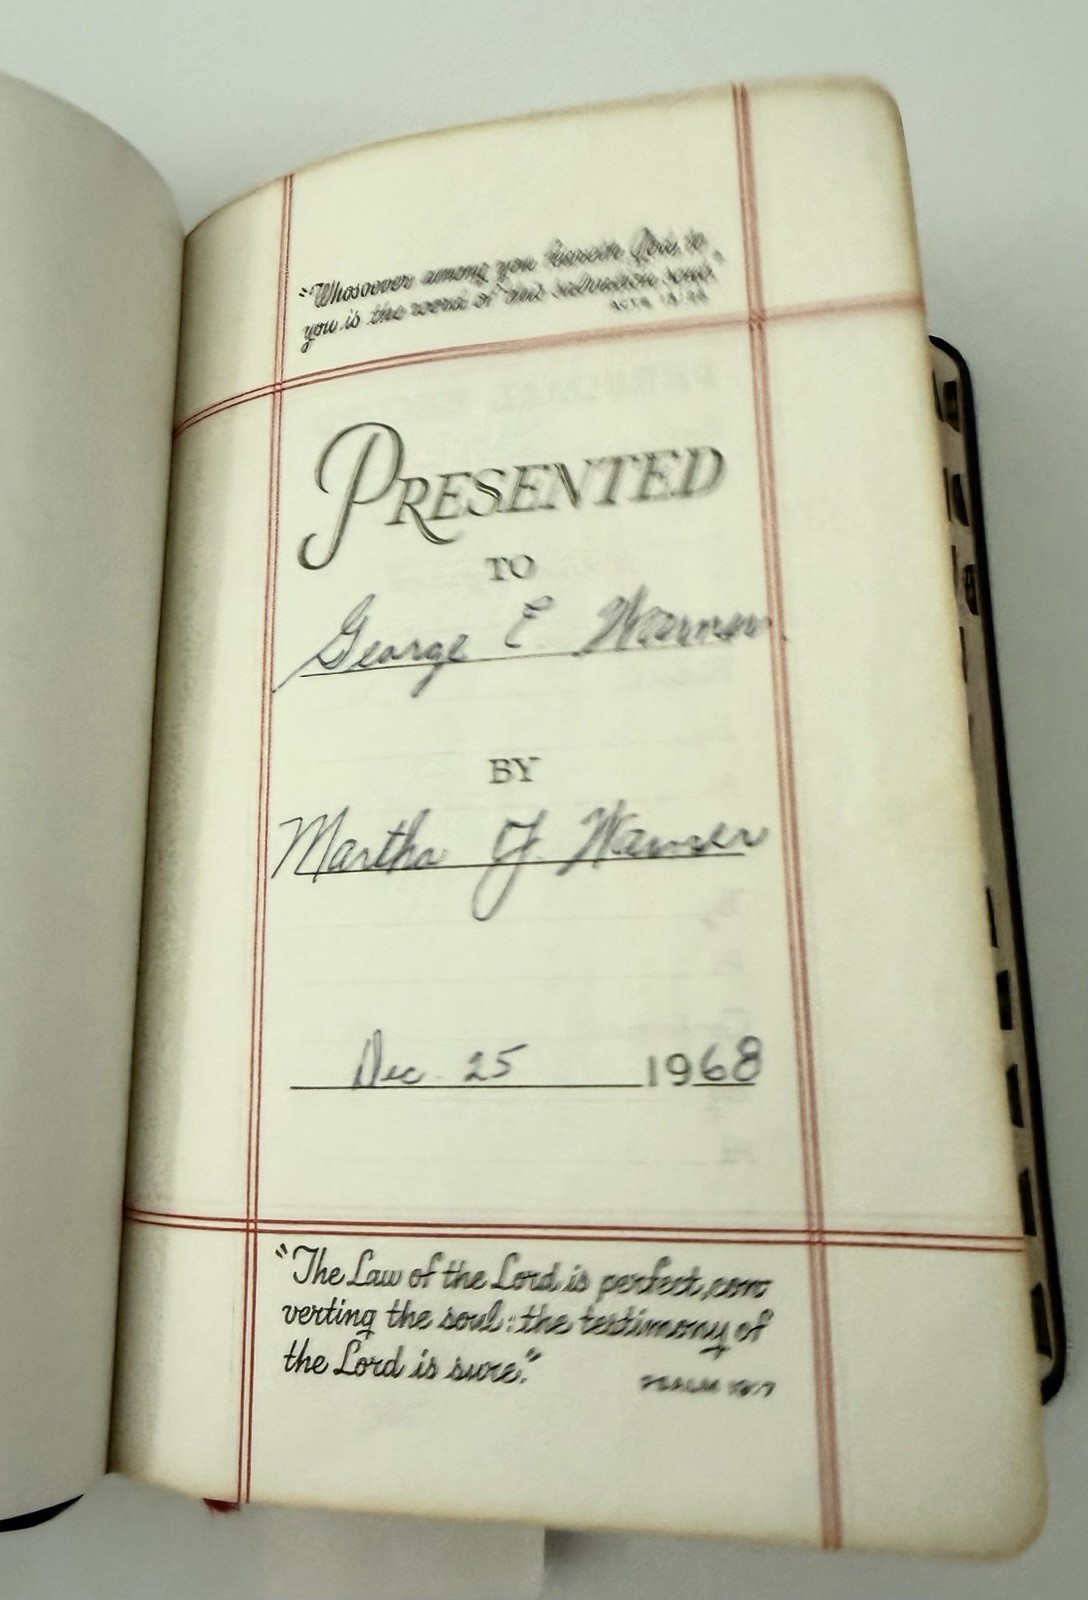 "Whosoever among you feareth God, to
you is the word of this salvation sent."
ACTS 13:26
PRESENTED
TO
George E. Warner
BY
Martha Y. Warner
Dec. 25 1968
"The Law of the Lord is perfect, con
verting the soul: the testimony of
the Lord is sure."
PSALM 19:7